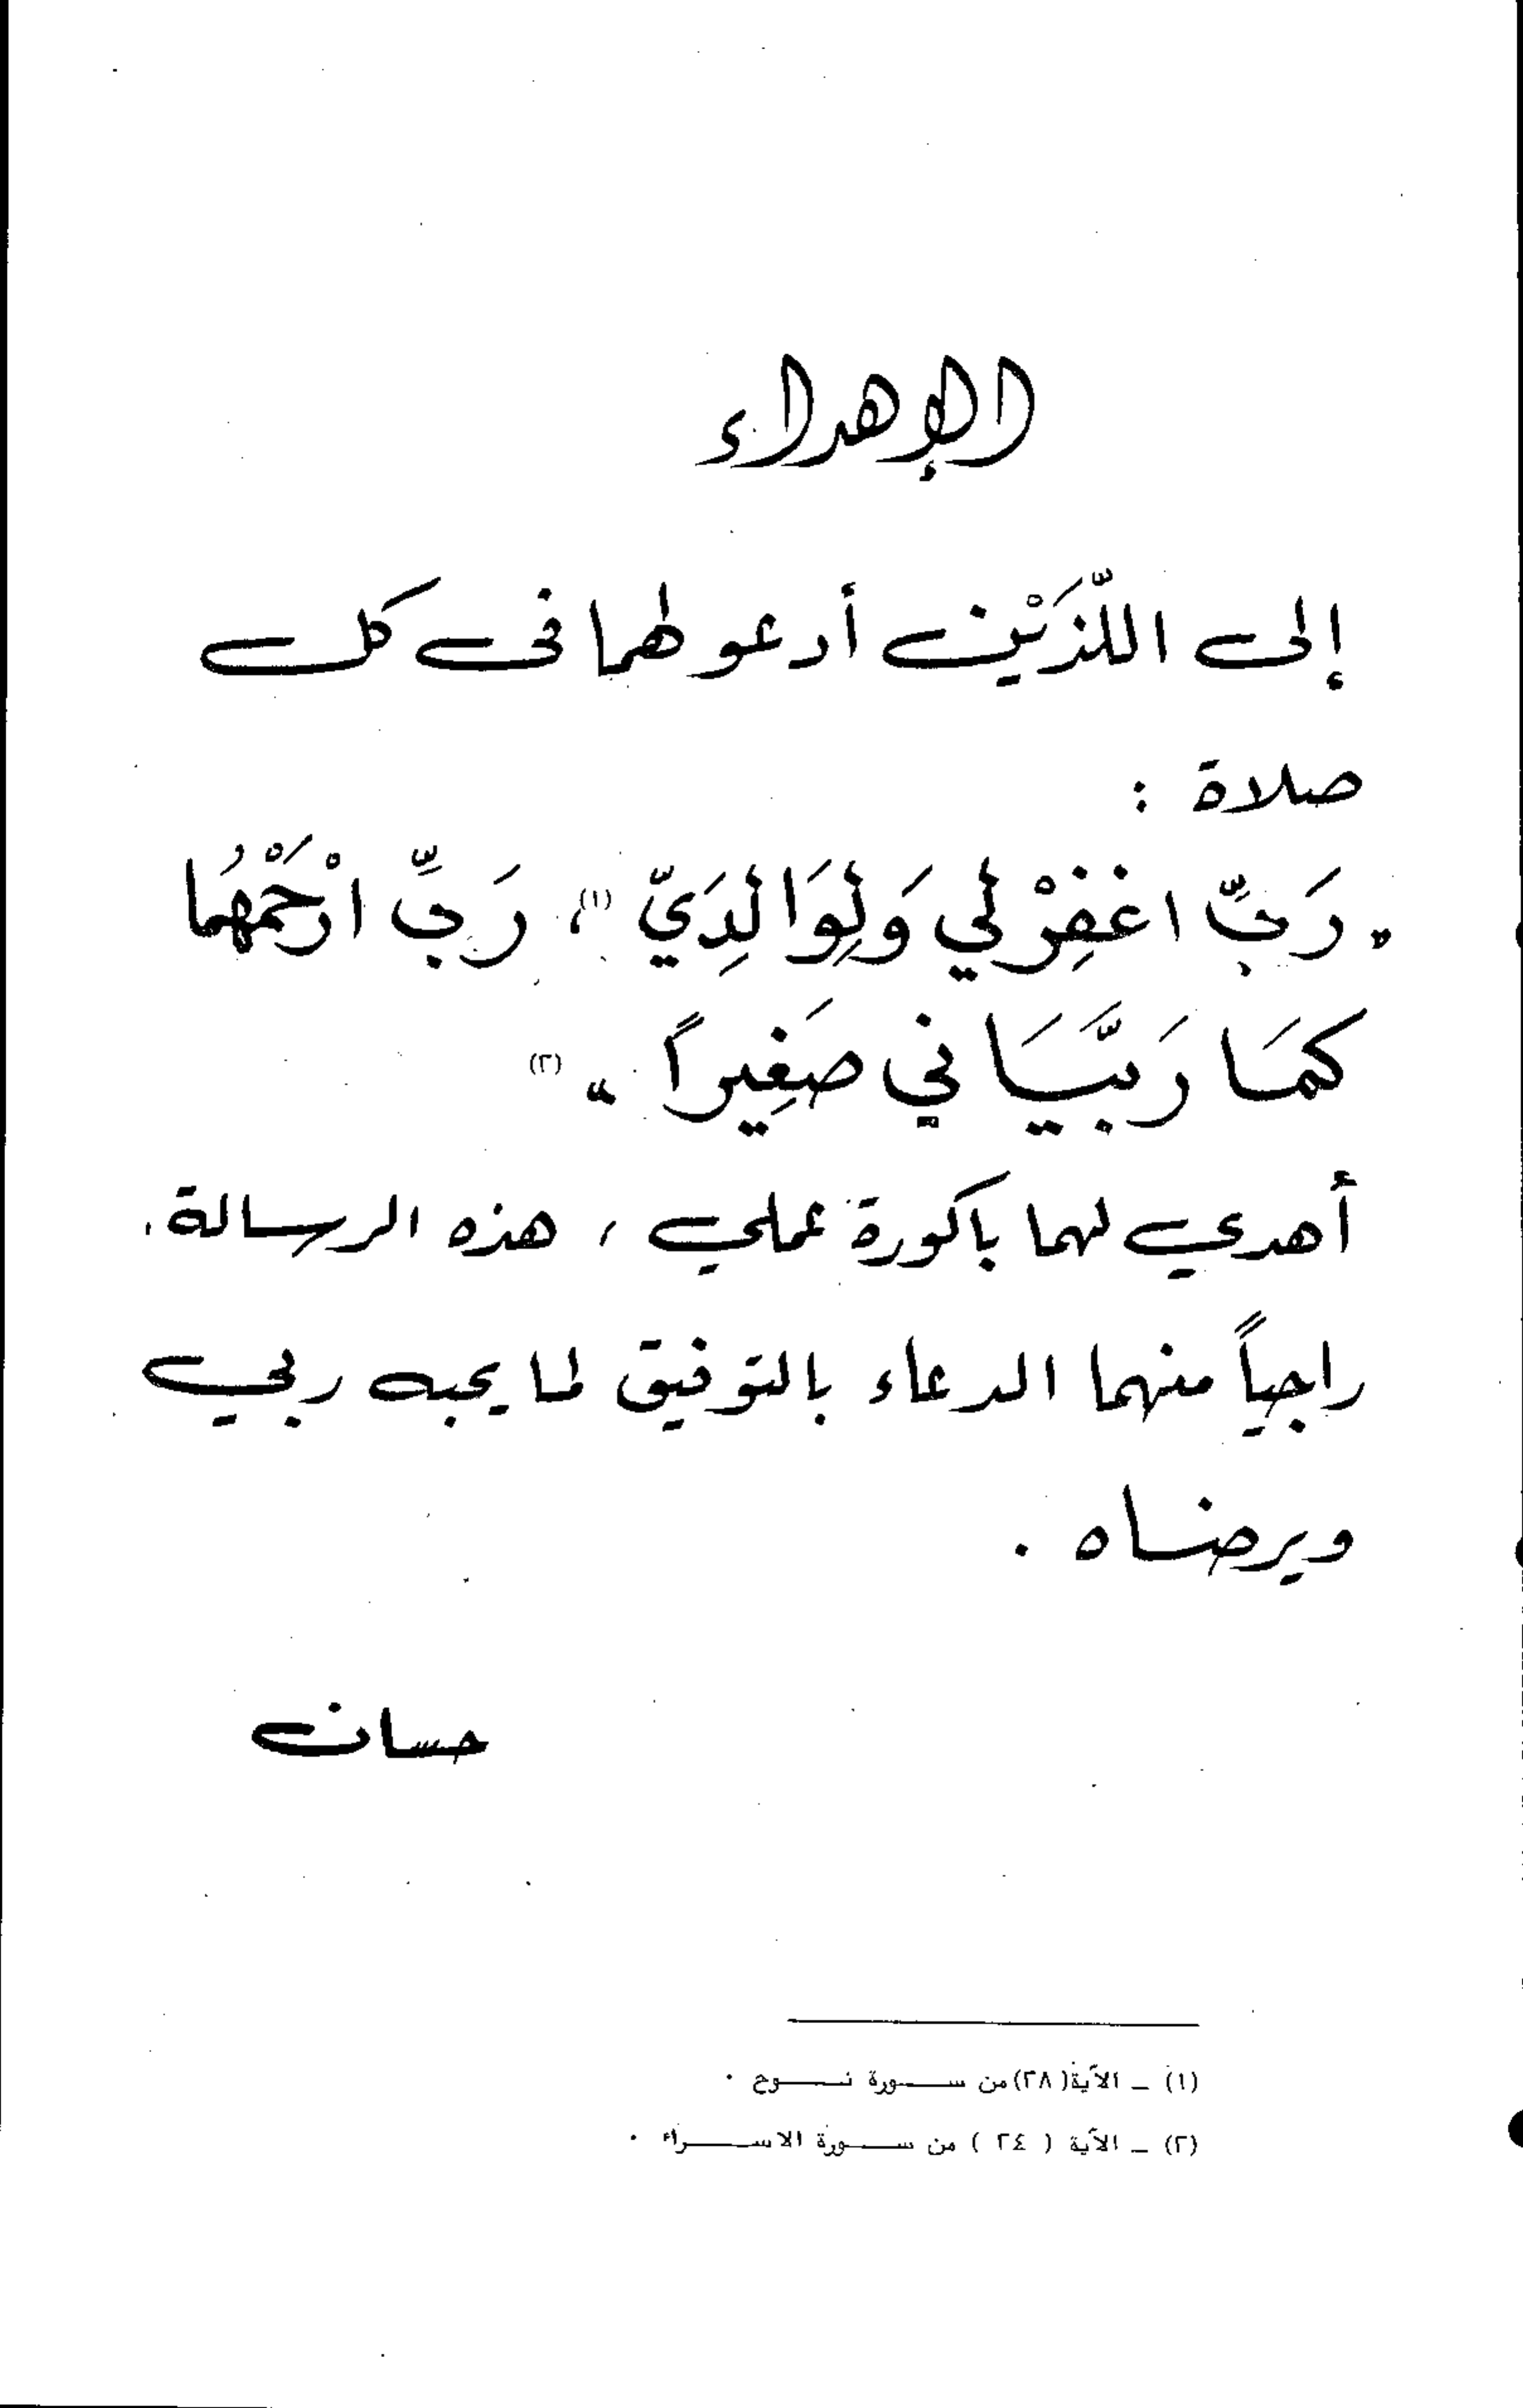 الإهداء
إلى اللَّذَيْن أدعو لهما في كل
صلاة :
" رَبِّ اغْفِرْ لي وَلِوَالِدَيّ (١) ، رَبِّ ارْحَمْهُما
كمَا رَبَّيَاني صَغِيراً " (٢)
أهدي لهما باكورة عملي ، هذه الرسالة .
راجياً منهما الدعاء بالتوفيق لما يحبه ربي
ويرضاه .
حسان
(١) - الآية (٢٨) من سورة نوح .
(٢) - الآية ( ٢٤ ) من سورة الاسراء .